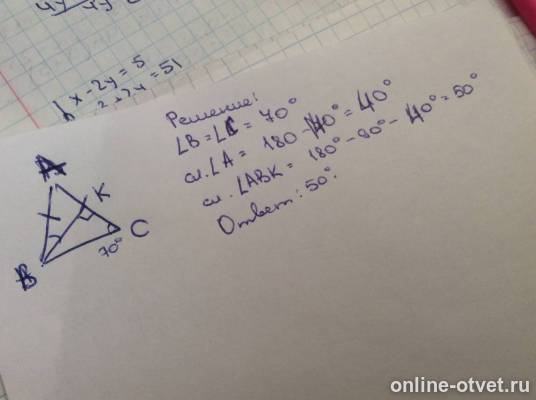 x - 2y = 5
Решение:
∠B = ∠C = 70°
сл. ∠A = 180 - 140° = 40°
сл. ∠ABK = 180° - 90° - 40° = 50°
Ответ: 50°.
A
K
C
70°
B
online-otvet.ru